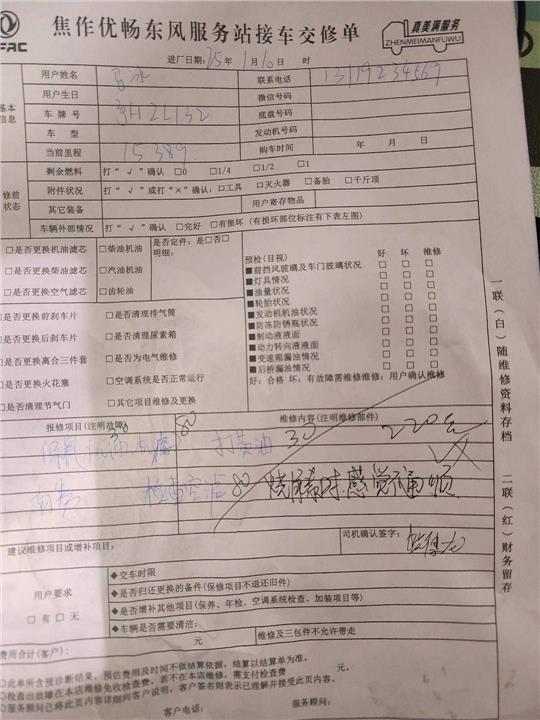 焦作优畅东风服务站接车交修单
真美满服务
ZHENMEIMANFUWU
进厂日期: 25年 1月 10日 时
用户姓名 联系电话 13192234669
用户生日 微信号码
基本信息 车牌号 底盘号码
车型 发动机号码
当前里程 15389 购车时间 年 月 日
修前状态 剩余燃料 打“√”确认 □0 □1/4 □1/2 □1
附件状况 打“√”或打“×”确认:□工具 □灭火器 □备胎 □千斤顶
其它装备 用户寄存物品
车辆外部情况 打“√”确认 □完好 □有损坏(有损坏部位标注有下表左图)
□是否更换机油滤芯 □柴油机油 是否定件:是□否□
明细:
□是否更换柴油滤芯 □汽油机油
□是否更换空气滤芯 □齿轮油
□是否更换前刹车片 □是否清理排气筒
□是否更换后刹车片 □是否清理尿素箱
□是否更换离合三件套 □是否为电气维修
□是否更换火花塞 □空调系统是否正常运行
□是否清理节气门 □其它项目维修及更换
预检(目视) 好 坏 维修
■前挡风玻璃及车门玻璃状况 □ □ □
■灯具情况 □ □ □
■油量状况 □ □ □
■轮胎状况 □ □ □
■发动机机油状况 □ □ □
■防冻防锈瓶状况 □ □ □
■制动液液面 □ □ □
■动力转向液液面 □ □ □
■变速箱漏油情况 □ □ □
■后桥漏油情况 □ □ □
好:合格 坏:有故障需维修维修:用户确认维修
报修项目(注明故障) 80 维修内容(注明维修部件)
打黄油 30 220元
80
建议维修项目或增补项目: 司机确认签字:
用户要求
□有 □无
◆交车时限
◆是否归还更换的备件(保修项目不退还旧件)
◆是否增补其他项目(保养、年检、空调系统检查、加装项目等)
◆车辆是否需要清洁:
费用合计(客户): 元 维修及三包件不允许带走
○此单所含预诊断结果、预估费用及时间不做结算依据,结算以结算单为准。
○检查出故障在本店维修免收检查费,若不在本店维修,需支付检查费 元。
○服务顾问已将此页内容详细向客户说明,客户签名则表示已理解并接受此页内容。
客户电话: 服务顾问:
一联(白)随维修资料存档
二联(红)财务留存